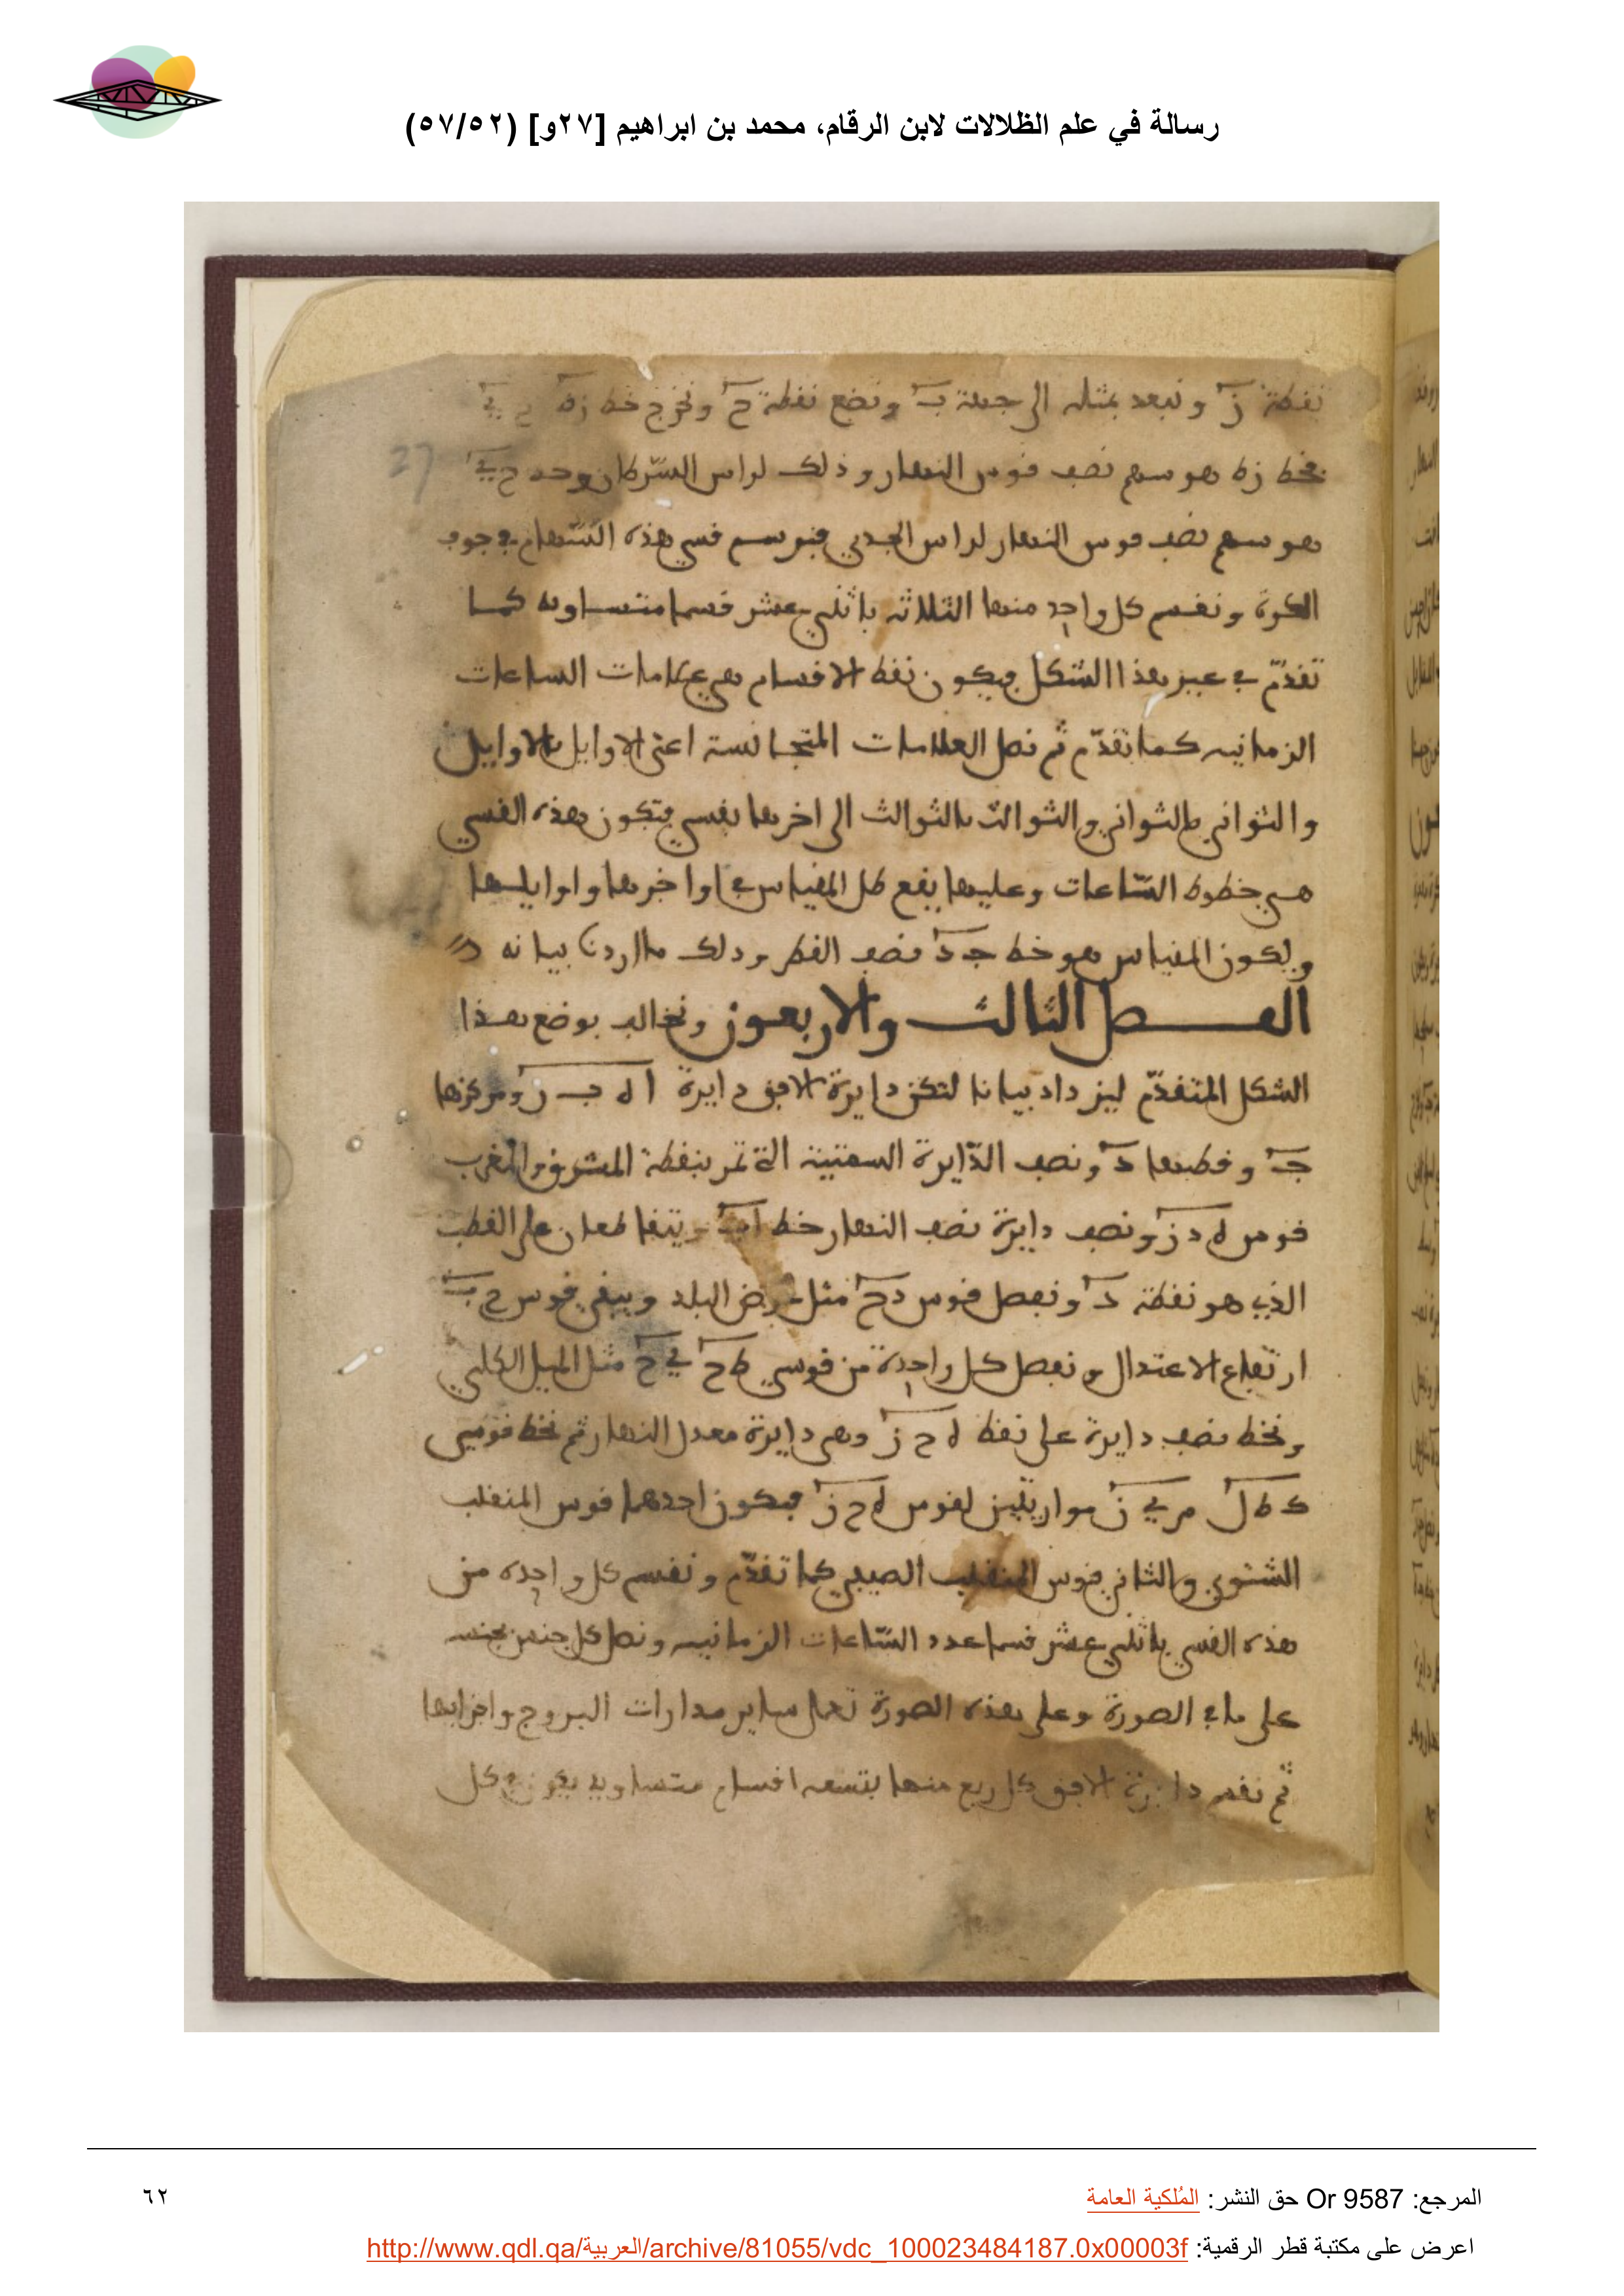 رسالة في علم الظلالات لابن الرقام، محمد بن ابراهيم [٢٧و] (٥٧/٥٢)
نقطة ز ونبعد بمثله الى جهة ب ونضع نقطة ح ونخرج خط زه ح ي
27
فخط زه هو سهم نصف قوس النهار وذلك لراس السّرطان وحد ح ي
هو سهم نصف قوس النهار لراس الجدي فنوسم قسي هذه السّهام فوجوف
الكرة ونقسم كل واحد منها الثلاثه باثني عشر قسما متساويه كما
تقدّم في غير هذا الشكل فيكون نقط الاقسام هي علامات الساعات
الزمانيه كما تقدّم ثم نصل العلامات المتجانسة اعني الاوايل بالاوايل
والثواني بالثواني والثوالث بالثوالث الى اخرها بقسي فتكون هذه القسي
هي خطوط السّاعات وعليها يقع ظل المقياس في اواخرها واوايلها
ويكون المقياس هو خط جد نصف القطر وذلك ما اردنا بيانه
الفصل الثالث والاربعون ونخالف بوضع هذا
الشكل المتقدّم ليزداد بيانا لتكن دايرة الافق دايرة ا ه ب ز ومركزها
ج وقطبها د ونصف الدّايرة السمتية التي تمر بنقطة المشرق والمغرب
قوس ه د ز ونصف دايرة نصف النهار خط اب ويتقاطعان على القطب
الذي هو نقطة د ونفصل قوس دح مثل عرض البلد ويبقى قوس ح ب
ارتفاع الاعتدال ونفصل كل واحدة من قوسي ط ح ي ح مثل الميل الكلي
ونخط نصف دايرة على نقط ه ح ز وهى دايرة معدل النهار ثم نخط قوسي
ك ط ل م ي ن موازيتين لقوس ه ح ز فيكون احدهما قوس المنقلب
الشتوي والثاني قوس المنقلب الصيفي كما تقدّم ونقسم كل واحده من
هذه القسي باثني عشر قسما عدد السّاعات الزمانيه ونصل كل جنس بجنسه
على ما في الصورة وعلى هذه الصورة تعمل ساير مدارات البروج واجزايها
ثم نقسم دايرة الافق كل ربع منها بتسعه اقسام متساويه يكون كل
المرجع: Or 9587 حق النشر: المُلكية العامة
٦٢
اعرض على مكتبة قطر الرقمية: http://www.qdl.qa/العربية/archive/81055/vdc_100023484187.0x00003f